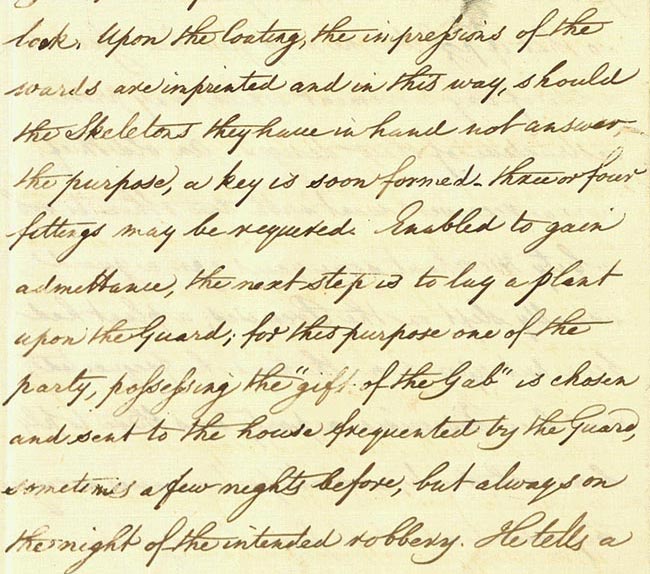 lock. Upon the Coating, the impressions of the
wards are imprinted and in this way, should
the Skeletons they have in hand not answer
the purpose, a key is soon formed - three or four
fittings may be required. Enabled to gain
admittance, the next step is to lay a plant
upon the Guard; for this purpose one of the
party, possessing the "gift of the Gab" is chosen
and sent to the house frequented by the Guard,
sometimes a few nights before, but always on
the night of the intended robbery. He tells a